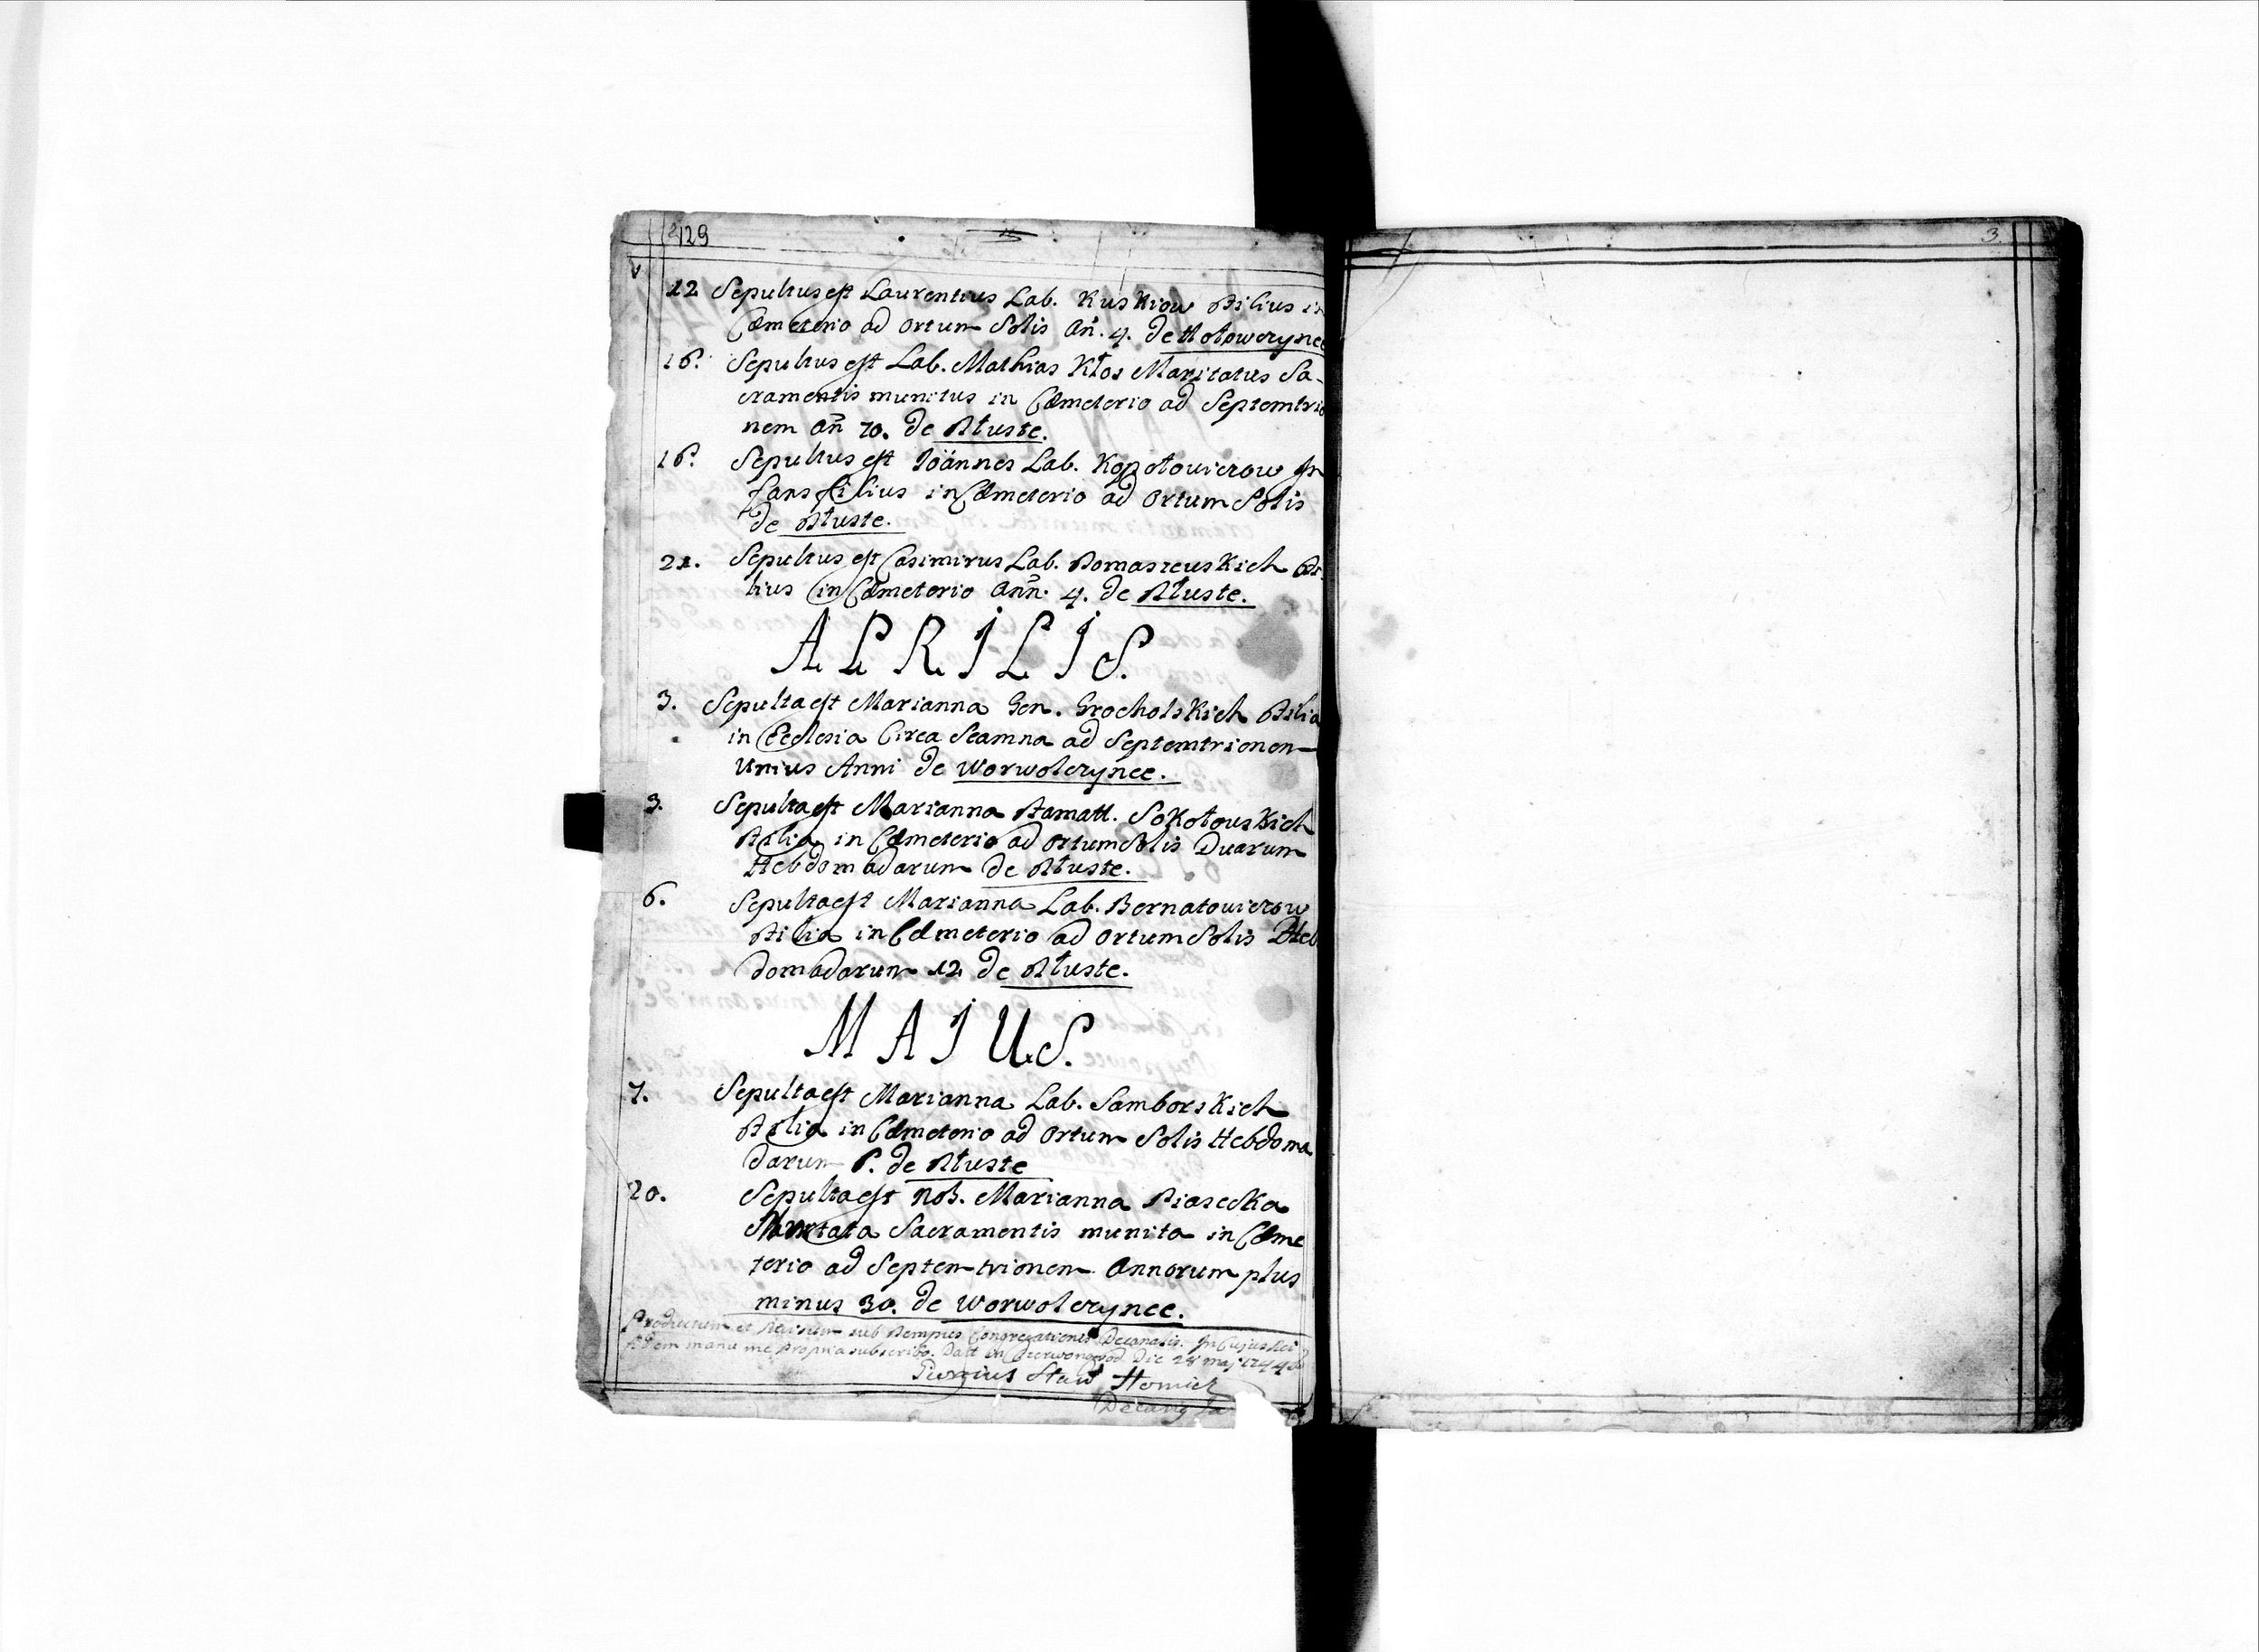 129
3.
12 Sepultus est Laurentius Lab. Kuskiow Filius in
Cæmeterio ad Ortum Solis An. 4. de Hołowczynce
16. Sepultus est Lab. Mathias Kłos Maritatus Sa-
cramentis munitus in Cæmeterio ad Septemtrio
nem Añ 70. de Tłuste.
16. Sepultus est Ioännes Lab. Kopotowiczow In
fans filius in Cæmeterio ad Ortum Solis
de Tłuste.
21. Sepultus est Casimirus Lab. Tomaszewskich Fi-
lius in Cæmeterio Añn. 4. de Tłuste.
APRILIS.
3. Sepulta est Marianna Gen. Grocholskich Filia
in Ecclesia Circa Scamna ad Septemtrionem
Unius Anni de Worwolczynce.
3. Sepulta est Marianna Famatt. Sokołowskich
Filia in Cæmeterio ad Ortum Solis Duarum
Hebdomadarum de Tłuste.
6. Sepulta est Marianna Lab. Bernatowiczow
Filia in Cæmeterio ad Ortum Solis Heb
domadarum 12 de Tłuste.
MAIUS.
7. Sepulta est Marianna Lab. Samborskich
Filia in Cæmeterio ad Ortum Solis Hebdoma
darum 6. de Tłuste
20. Sepulta est Nob. Marianna Piasecka
Maritata Sacramentis munita in Cæme
terio ad Septemtrionem Annorum plus
minus 30. de Worwolczynce.
Productum et Revisum sub Tempus Congregationis Decanalis. In Cujus Rei
Fidem manu me propria subscribo. Datt in Czerwonogrod Die 28 maj 1744
Decanus